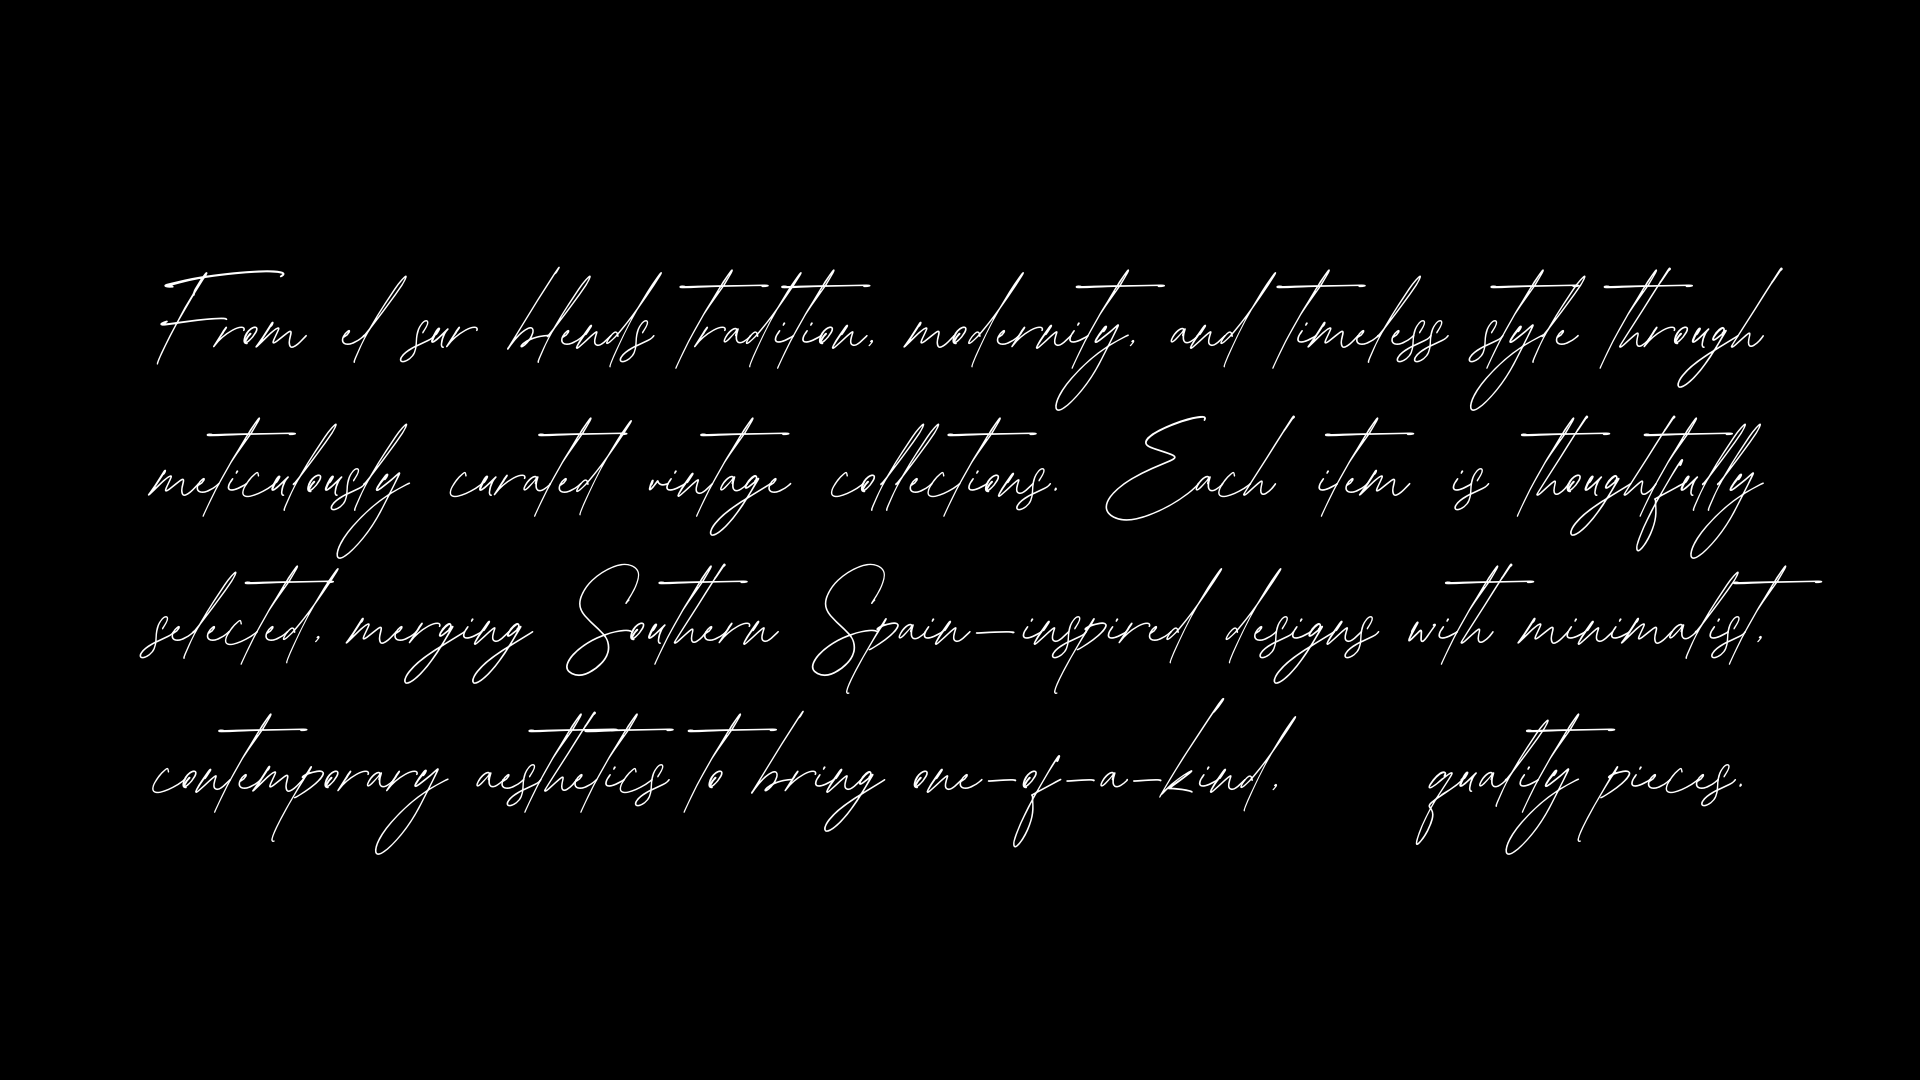 From el sur blends tradition, modernity, and timeless style through
meticulously curated vintage collections. Each item is thoughtfully
selected, merging Southern Spain-inspired designs with minimalist,
contemporary aesthetics to bring one-of-a-kind, quality pieces.